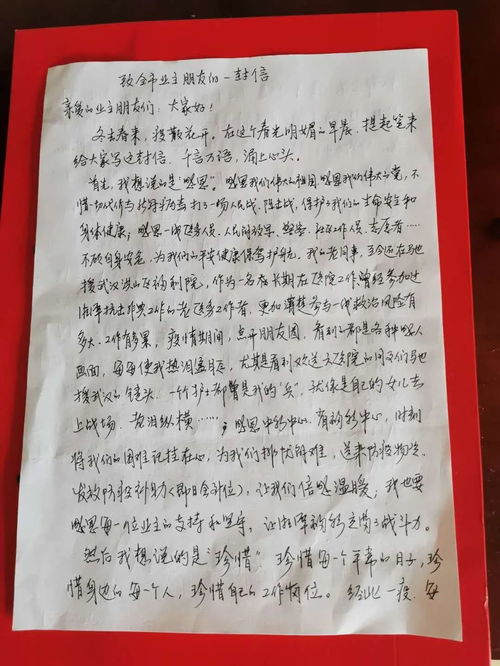 致全市业主朋友们一封信
亲爱的业主朋友们：大家好！
冬去春来，疫散花开。在这个春光明媚的早晨，提起笔来
给大家写这封信，千言万语，涌上心头。
首先，我想说的是“感恩”。感恩我们伟大的祖国，感恩我们伟大的党，不
惜一切代价与新冠病毒打了一场人民战、阻击战，保护了我们的生命安全和
身体健康；感恩一线医务人员、人民解放军、警察、社区工作人员、志愿者……
不顾自身安危，为我们的平安健康保驾护航。我的老同事，至今还在驰
援武汉洪山区
作为一名在长期在医院工作，曾经参加过
抗击非典工作的老医务工作者，更加清楚参与一线救治风险有
多大、工作有多累，疫情期间，点开朋友圈，看到的都是各种感人
画面，每每使我热泪盈眶，尤其是看到欢送大医院的同事们驰
援武汉的镜头，一个个护士都曾是我的“兵”，就像是自己的女儿去
上战场，老泪纵横……；感恩中
中心，时刻
将我们的困难记挂在心，为我们排忧解难，送来防疫物资、
发放防疫补助
，让我们倍感温暖；我也要
感恩每一位业主的支持和坚守，让
充满了战斗力。
然后我想说的是“珍惜”，珍惜每一个平常的日子，珍
惜身边的每一个人，珍惜自己的工作岗位。经此一疫，每